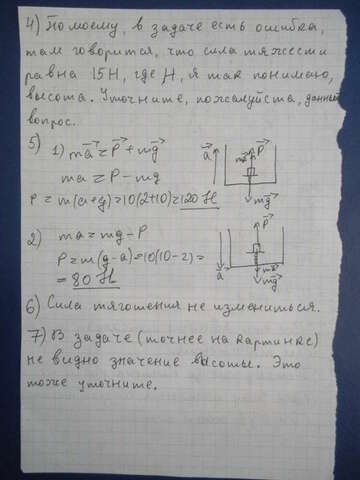 4) По моему, в задаче есть ошибка,
там говорится, что сила тяжести
равна 15Н, где Н, я так понимаю,
высота. Уточните, пожалуйста, данный
вопрос.
5) 1) ma⃗ = P⃗ + mg⃗
ma = P - mg
P = m(a+g) = 10(2+10) = 120 Н
a⃗ ma⃗ P⃗
mg⃗
2) ma = mg - P
P = m(g-a) = 10(10-2) =
= 80 Н
P⃗
a⃗ ma⃗ mg⃗
6) Сила тяготения не измениться.
7) В задаче (точнее на картинке)
не видно значение высоты. Это
тоже уточните.